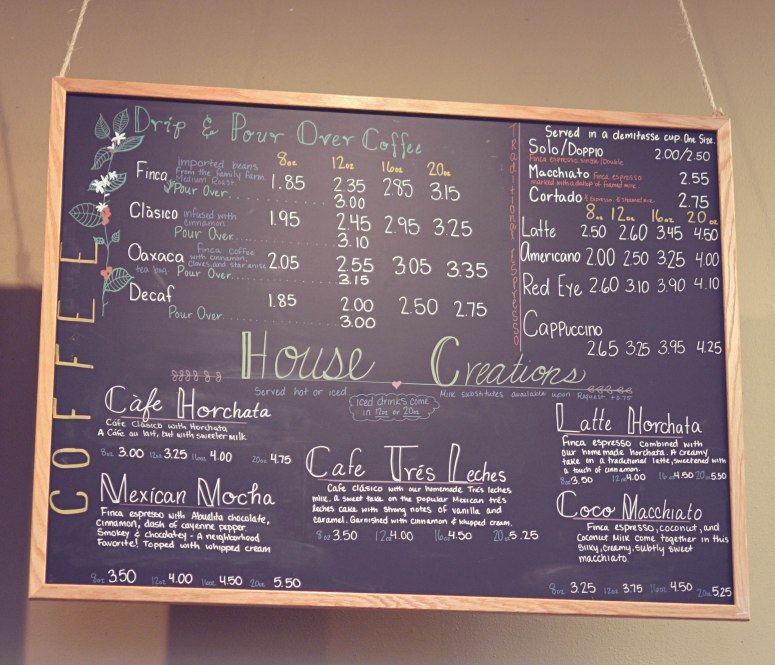 COFFEE
Drip & Pour Over Coffee
8oz 12oz 16oz 20oz
Finca imported beans
from the family farm.
Medium Roast.
1.85 2.35 2.85 3.15
Pour Over 3.00
Clàsico infused with
cinnamon.
1.95 2.45 2.95 3.25
Pour Over 3.10
Oaxaca Finca coffee
with cinnamon,
cloves, and star anise
tea bag
2.05 2.55 3.05 3.35
Pour Over 3.15
Decaf 1.85 2.00 2.50 2.75
Pour Over 3.00
Traditional Espresso
Served in a demitasse cup. One Size.
Solo/Doppio 2.00/2.50
Finca espresso single/Double
Macchiato Finca espresso 2.55
marked with a dollop of foamed milk.
Cortado Espresso & Steamed milk 2.75
8oz 12oz 16oz 20oz
Latte 2.50 2.60 3.45 4.50
Americano 2.00 2.50 3.25 4.00
Red Eye 2.60 3.10 3.90 4.10
Cappuccino
2.65 3.25 3.95 4.25
House Creations
Served hot or iced
Milk substitutes available upon Request +0.75
iced drinks come
in 12oz or 20oz
Càfe Horchata
Café Clásico with Horchata,
A Café au lait, but with sweeter milk
8oz 3.00 12oz 3.25 16oz 4.00 20oz 4.75
Mexican Mocha
Finca espresso with Abuelita chocolate,
Cinnamon, dash of cayenne pepper.
Smokey & chocolatey - A neighborhood
Favorite! Topped with whipped cream
8oz 3.50 12oz 4.00 16oz 4.50 20oz 5.50
Cafe Trés Leches
Cafe clásico with our homemade Trés leches
milk. A sweet take on the popular Mexican trés
leches cake with strong notes of vanilla and
caramel. Garnished with cinnamon & whipped cream.
8oz 3.50 12oz 4.00 16oz 4.50 20oz 5.25
Latte Horchata
Finca espresso combined with
our homemade horchata. A creamy
take on a traditional latte, sweetened with
a touch of cinnamon.
8oz 3.50 12oz 4.00 16oz 4.50 20oz 5.50
Coco Macchiato
Finca espresso, coconut, and
Coconut Milk come together in this
Silky, creamy, subtly sweet
macchiato.
8oz 3.25 12oz 3.75 16oz 4.50 20oz 5.25